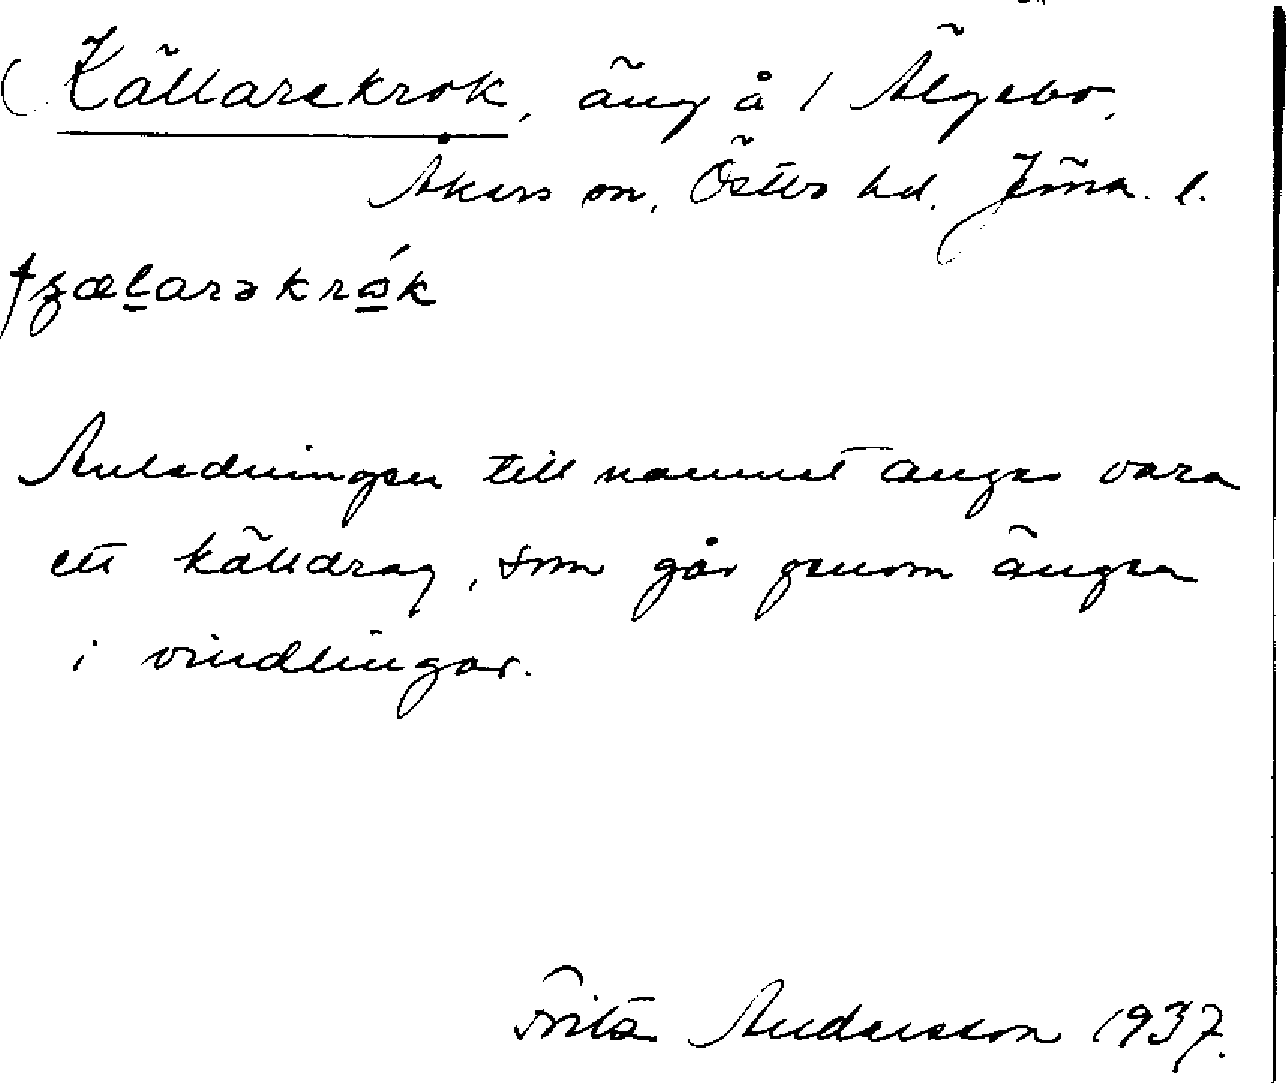 (Källarekrok, äng å 1 Älgebo,
Åkers sn, Östbo hd. Jöna. l.
tʂæḻarəkrók
Anledningen till namnet anges vara
ett källdrag, som går genom ängen
i vindlingar.
Frits Andersson 1937.